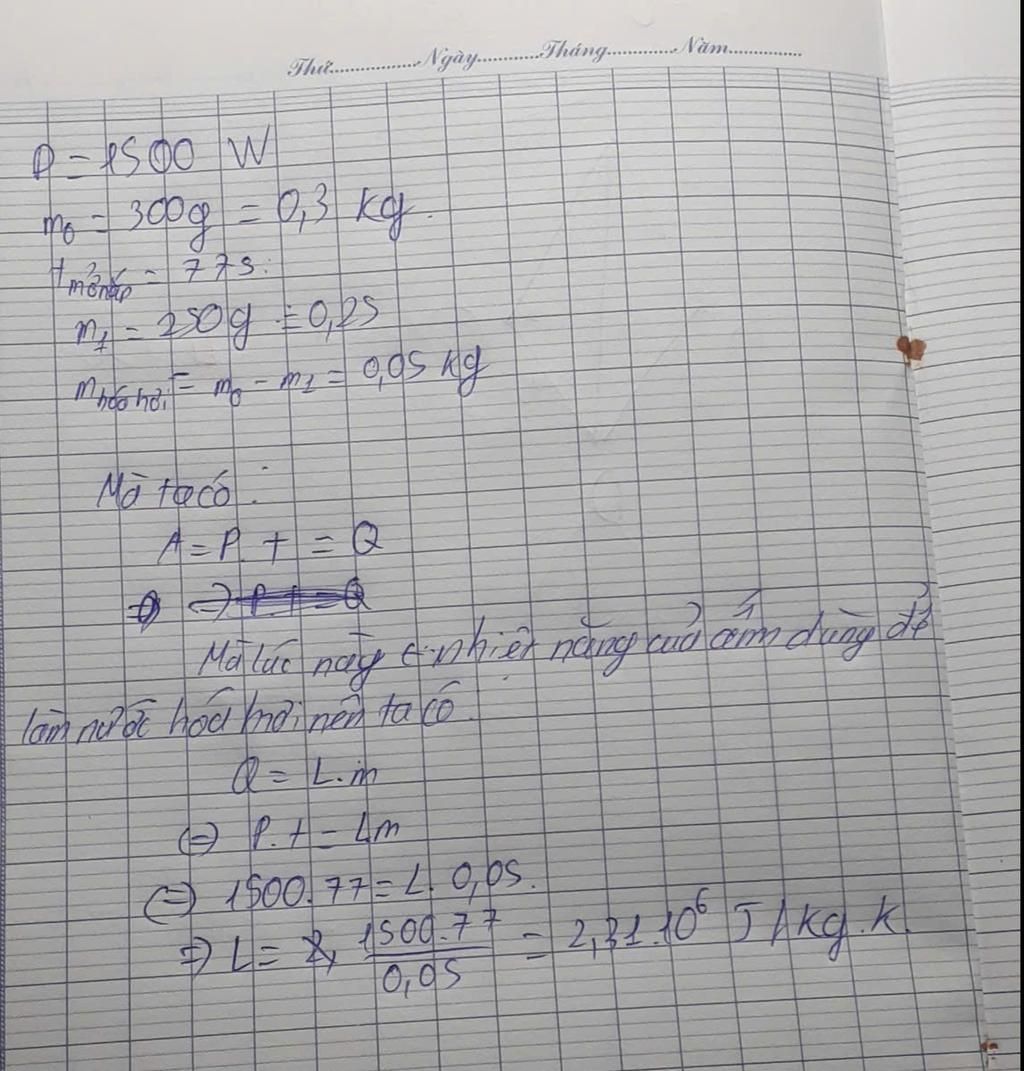 Thứ...............Ngày...........Tháng............Năm.............
P = 1500 W
m₀ = 300g = 0,3 kg.
t mở nắp = 77s.
m₁ = 250g = 0,25
m hoá hơi = m₀ - m₁ = 0,05 kg
Mà ta có :
A = P. t = Q
Mà lúc này nhiệt năng của ấm dùng để
làm nước hoá hơi nên ta có
Q = L.m
(=) P. t = Lm
(=) 1500.77 = L. 0,05.
=) L = 1500.77 / 0,05 = 2,31.10⁶ J/kg.k.